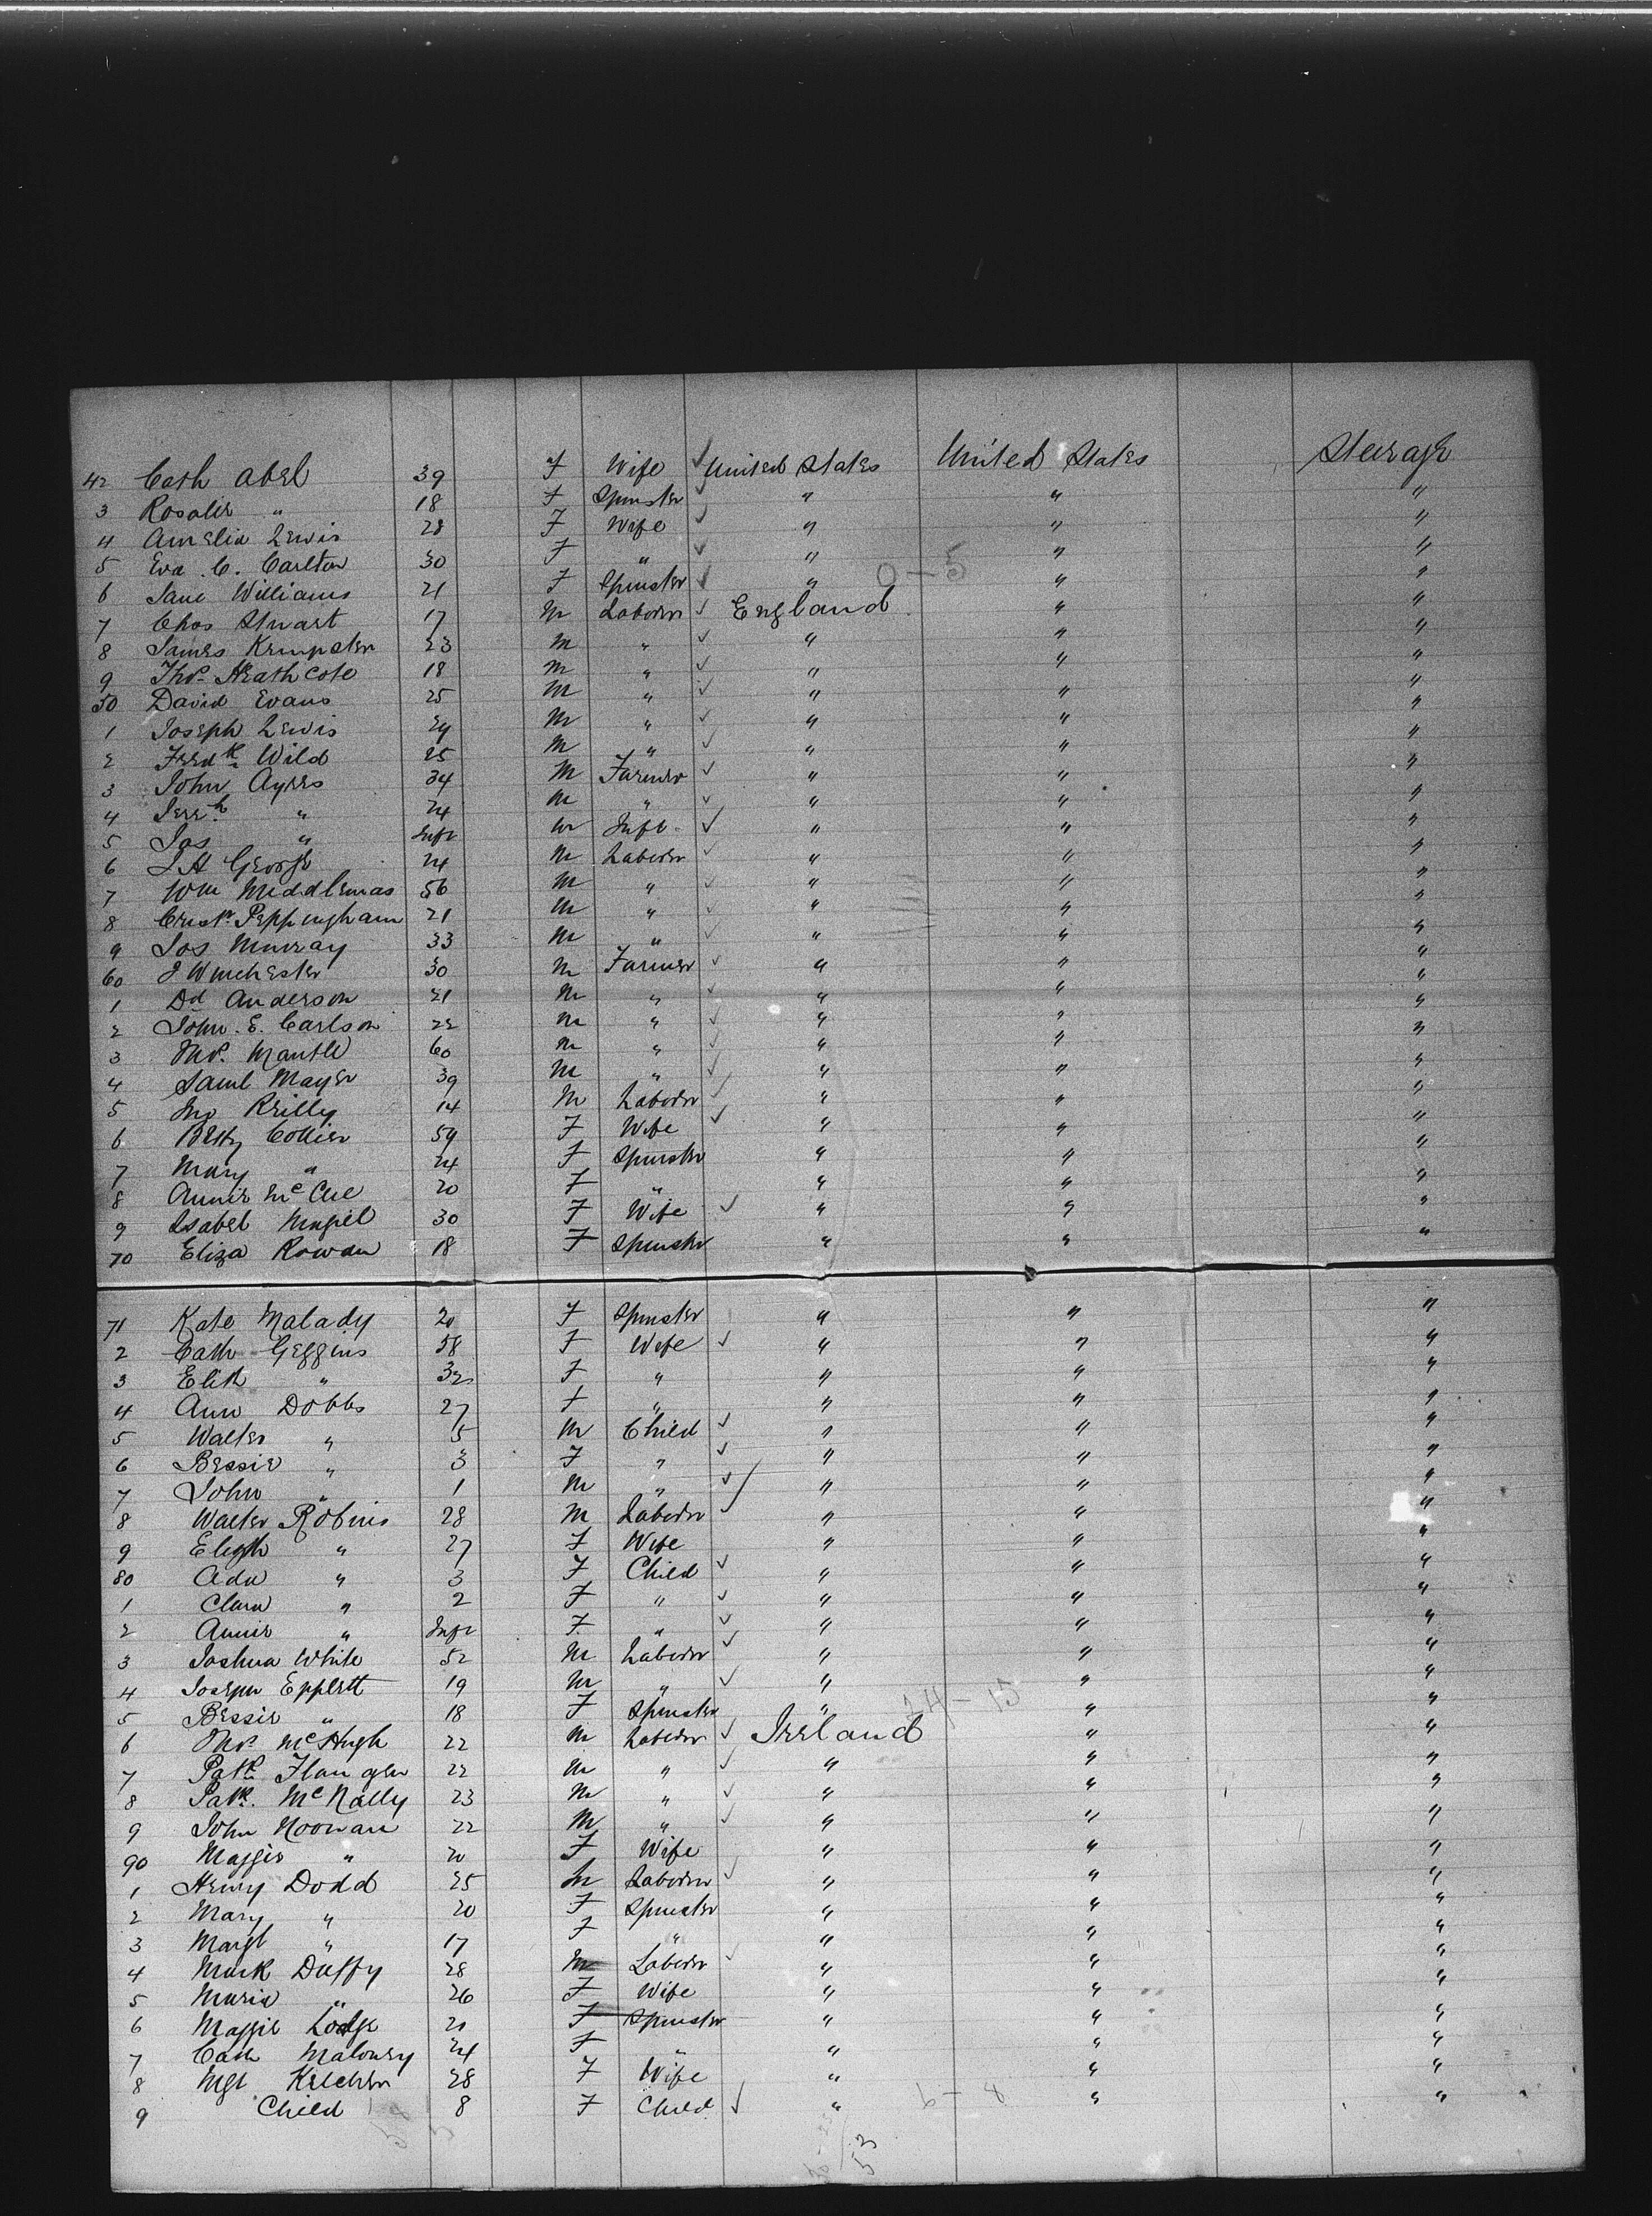 42 Cath Abel 39 F Wife ✓ United States United States Steerage
3 Rosalie " 18 F Spinster ✓ " " "
4 Amelia Lewis 28 F Wife ✓ " " "
5 Eva C. Carlton 30 F " ✓ " " "
6 Jane Williams 21 F Spinster ✓ " 0-5 " "
7 Chas Stuart 17 M Laborer ✓ England " "
8 James Krimpster 23 M " ✓ " " "
9 Thos Heathcote 18 M " ✓ " " "
50 David Evans 25 M " ✓ " " "
1 Joseph Lewis 29 M " ✓ " " "
2 Fredk Wild 25 M " ✓ " " "
3 John Ayers 34 M Farmer ✓ " " "
4 Jereh " 24 M " ✓ " " "
5 Jas " Inft M Inft. ✓ " " "
6 J H George 24 M Laborer ✓ " " "
7 Wm Middlemas 56 M " ✓ " " "
8 Peppingham 21 M " ✓ " " "
9 Jos Murray 33 M " ✓ " " "
60 J Winchester 30 M Farmer ✓ " " "
1 Dd Anderson 21 M " ✓ " " "
2 John. E. Carlson 22 M " ✓ " " "
3 Thos. Mantle 60 M " ✓ " " "
4 Saml Mayer 39 M " ✓ " " "
5 Jno Reilly 14 M Laborer ✓ " " "
6 Betty Collier 59 F Wife ✓ " " "
7 Mary " 24 F Spinster " " "
8 Annie McCue 20 F " " " "
9 Isabel 30 F Wife ✓ " " "
70 Eliza Rowan 18 F Spinster " " "
71 Kate Malady 20 F Spinster " " "
2 Cath Geggins 58 F Wife ✓ " " "
3 Elith " 32 F " " " "
4 Ann Dobbs 27 F " " " "
5 Walter " 5 M Child ✓ " " "
6 Bessie " 3 F " ✓ " " "
7 John " 1 M " ✓ " " "
8 Walter Robins 28 M Laborer ✓ " " "
9 " 27 F Wife " " "
80 Ada " 3 F Child ✓ " " "
1 Clara " 2 F " ✓ " " "
2 Annie " Inft F " ✓ " " "
3 Joshua White 52 M Laborer ✓ " " "
4 Joseph Epplett 19 M " ✓ " " "
5 Bessie " 18 F Spinster " " "
6 Thos. McHugh 22 M Laborer ✓ Ireland " "
7 Patk Flangan 22 M " ✓ " " "
8 Patk. McNally 23 M " ✓ " " "
9 John Noonan 22 M " ✓ " " "
90 Maggie " 20 F Wife " " "
1 Henry Dodd 25 M Laborer ✓ " " "
2 Mary " 20 F Spinster " " "
3 Margt " 17 F " " " "
4 Mark Duffy 28 M Laborer ✓ " " "
5 Maria " 26 F Wife " " "
6 Maggie Lodge 21 F Spinster " " "
7 Cath Maloney 24 F " " " "
8 Mgt Kelcher 28 F Wife " " "
9 Child 8 F Child ✓ " 6-8 " "
53